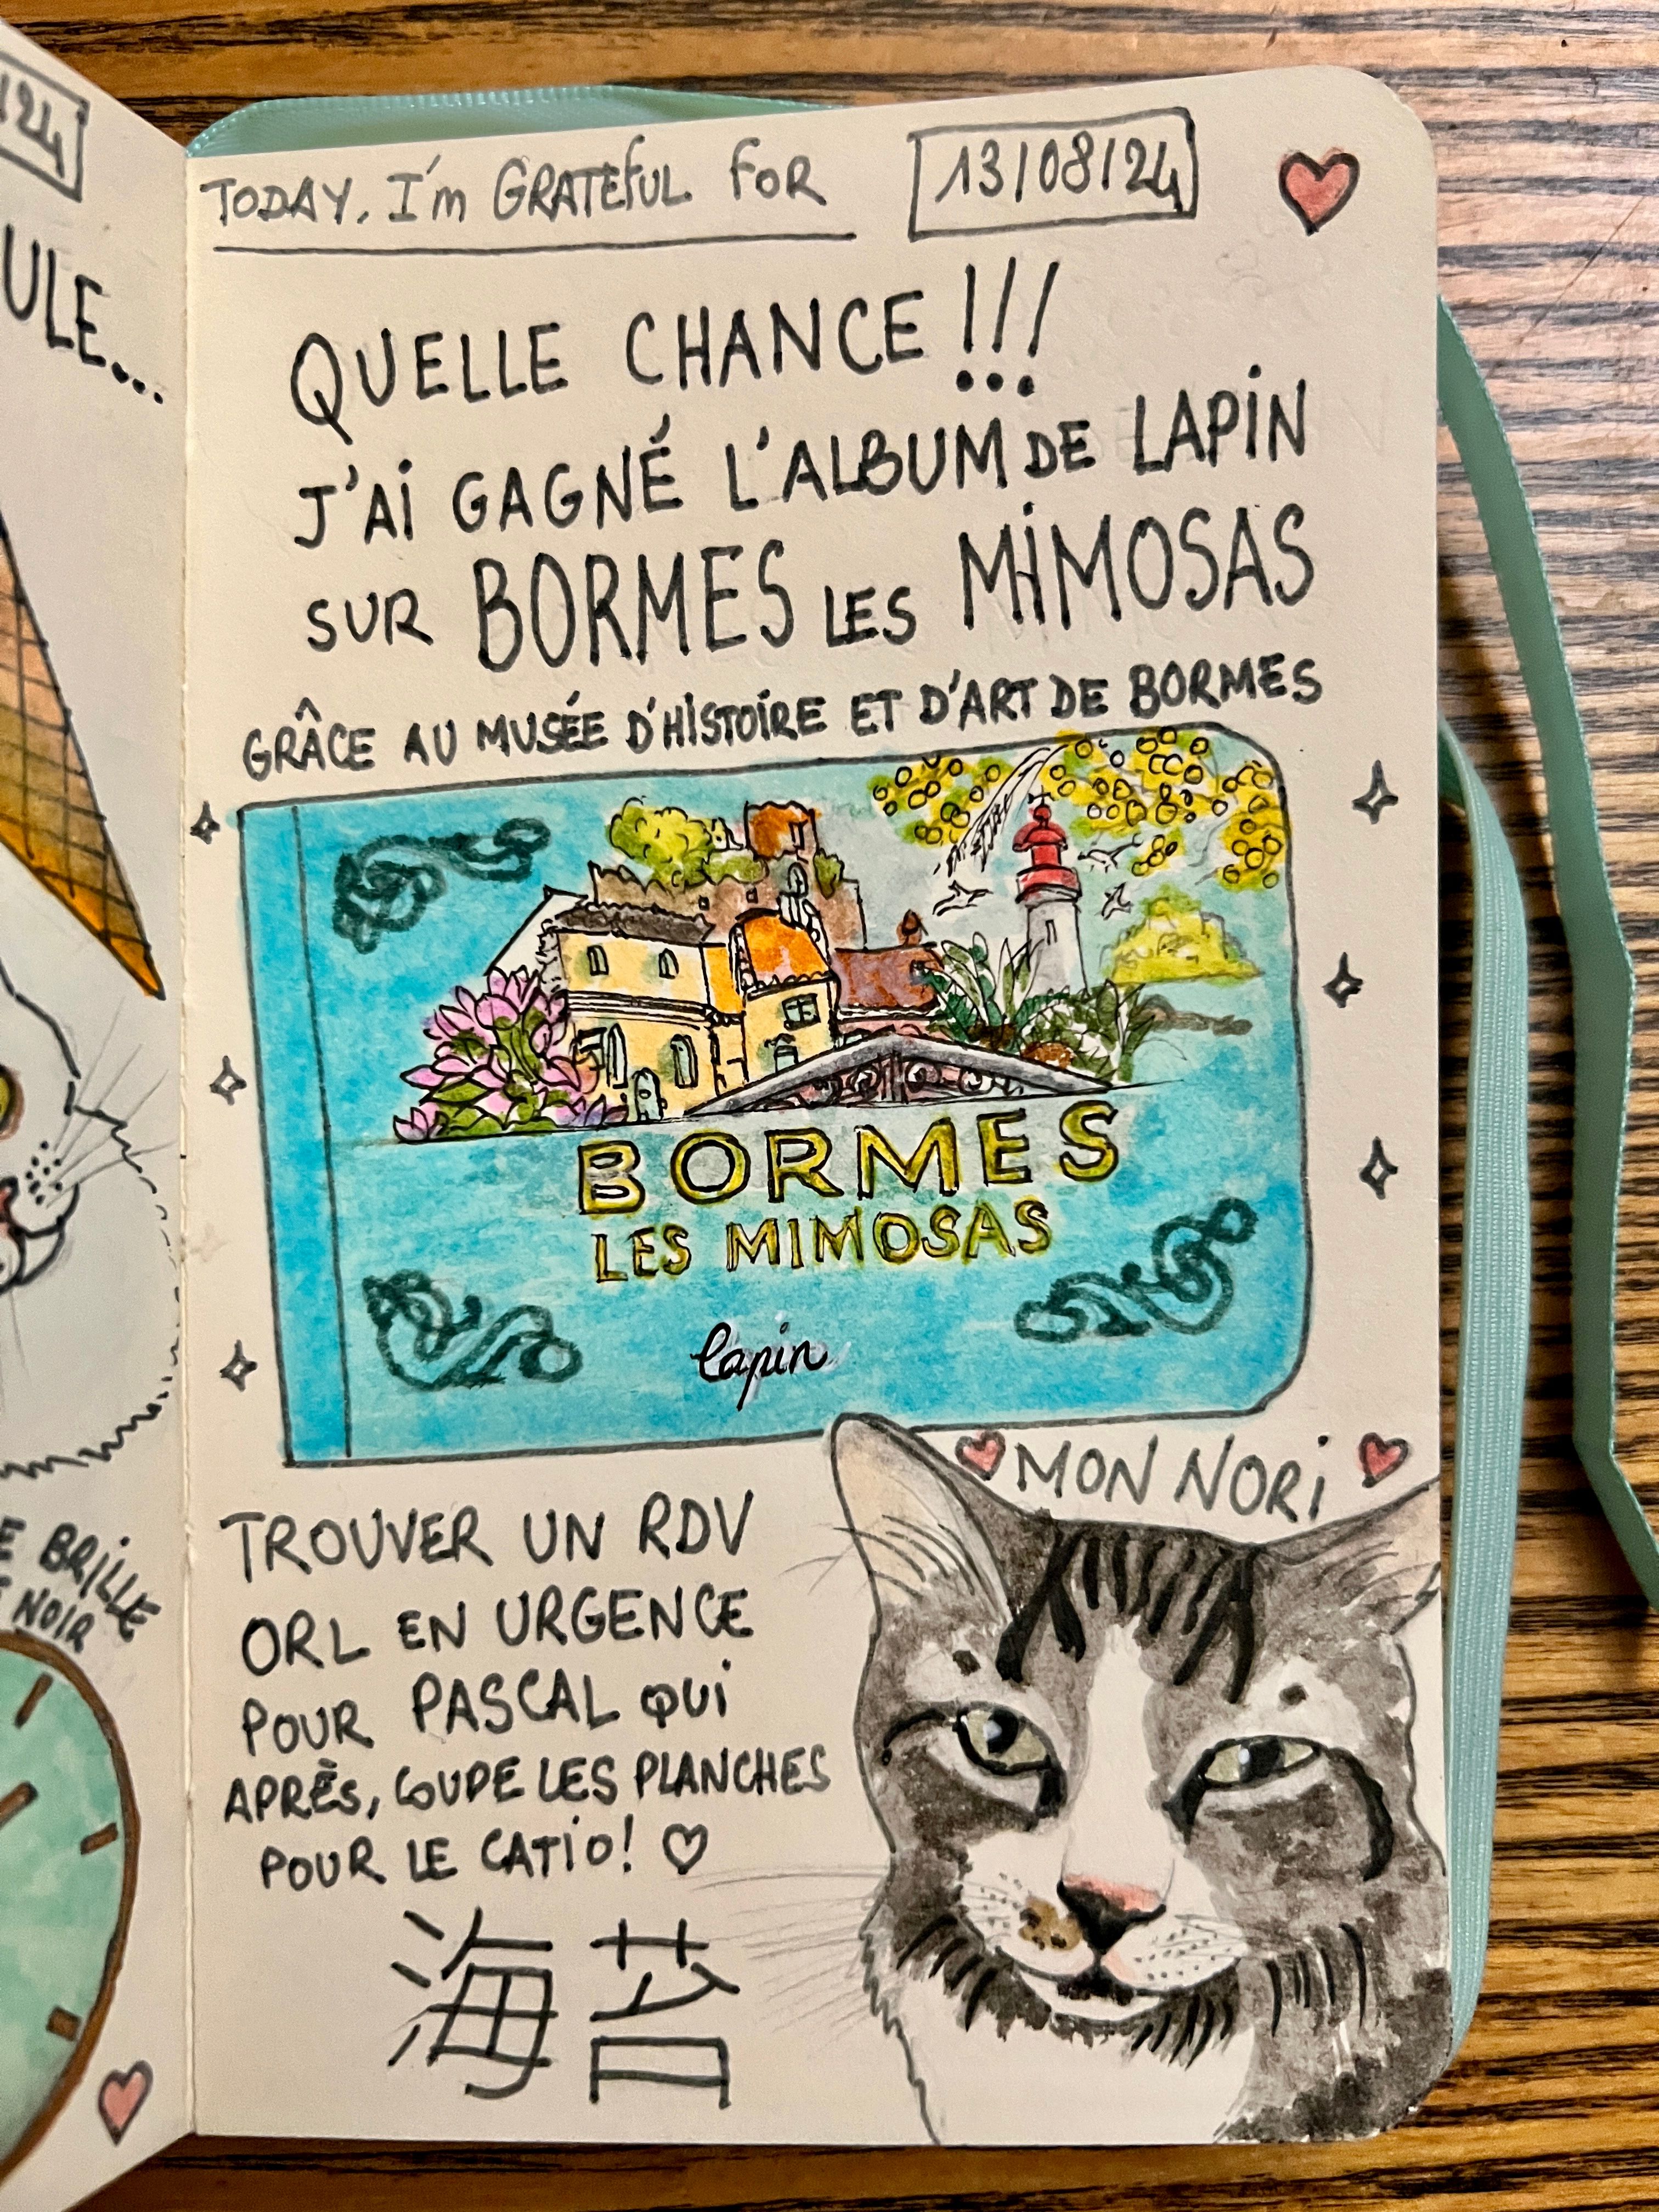 124
ULE...
E BRILLE
NOIR
TODAY, I'm GRATEFUL FOR 13/08/24
QUELLE CHANCE !!!
J'AI GAGNÉ L'ALBUM DE LAPIN
SUR BORMES LES MIMOSAS
GRÂCE AU MUSÉE D'HISTOIRE ET D'ART DE BORMES
BORMES
LES MIMOSAS
lapin
MON NORI
TROUVER UN RDV
ORL EN URGENCE
POUR PASCAL QUI
APRÈS, COUPE LES PLANCHES
POUR LE CATIO!
海苔